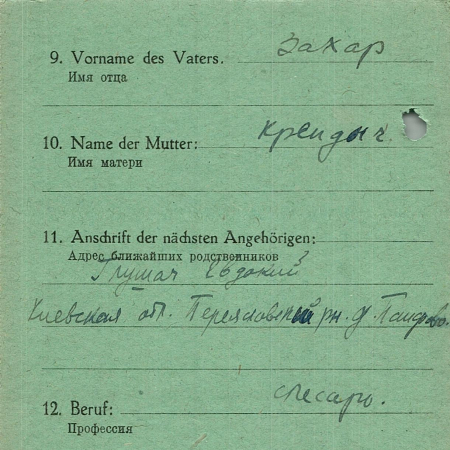 9. Vorname des Vaters. Захар
Имя отца
10. Name der Mutter: Крендыч.
Имя матери
11. Anschrift der nächsten Angehörigen:
Адрес ближайших родственников
Глушач Евдокий
Киевская обл. Переяславский рн. д.
12. Beruf: слесарь.
Профессия